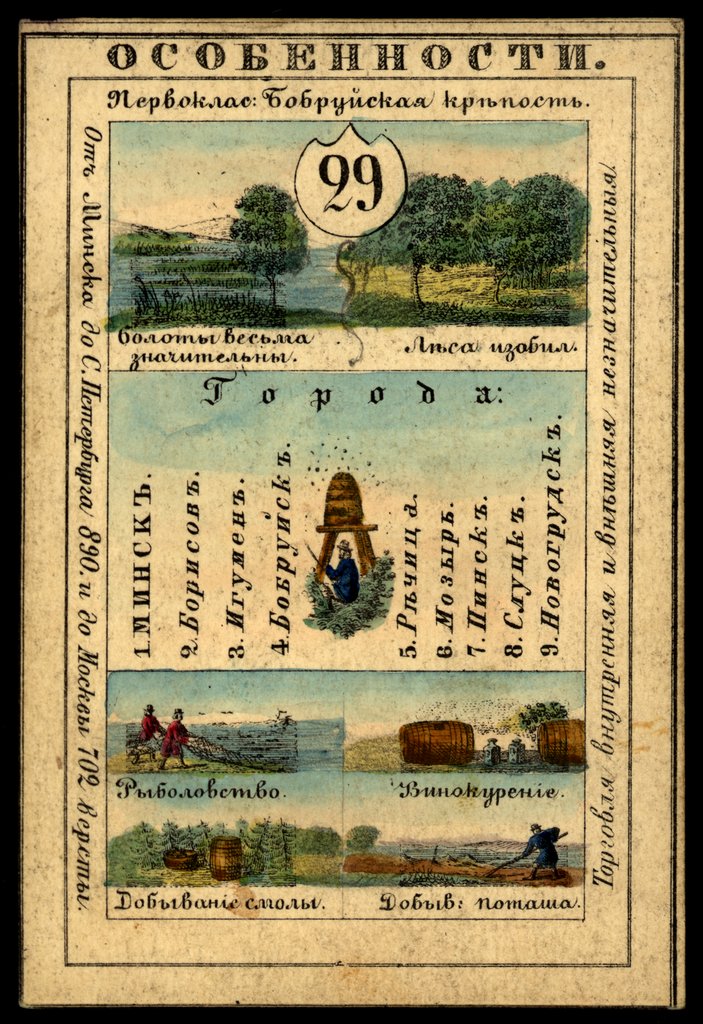 ОСОБЕННОСТИ.
Первоклас: Бобруйская крѣпость.
Отъ Минска до С. Петербурга 890. и до Москвы 702 версты.
29
болоты весьма
значительны.
Лѣса изобил.
Города:
1. МИНСКЪ.
2. Борисовъ.
3. Игуменъ.
4. Бобруйскъ.
5. Рѣчица.
6. Мозырь.
7. Пинскъ.
8. Слуцкъ.
9. Новогрудскъ.
Рыболовство.
Винокуреніе.
Добываніе смолы.
Добыв: поташа.
Торговля внутренняя и внѣшняя незначительныя.